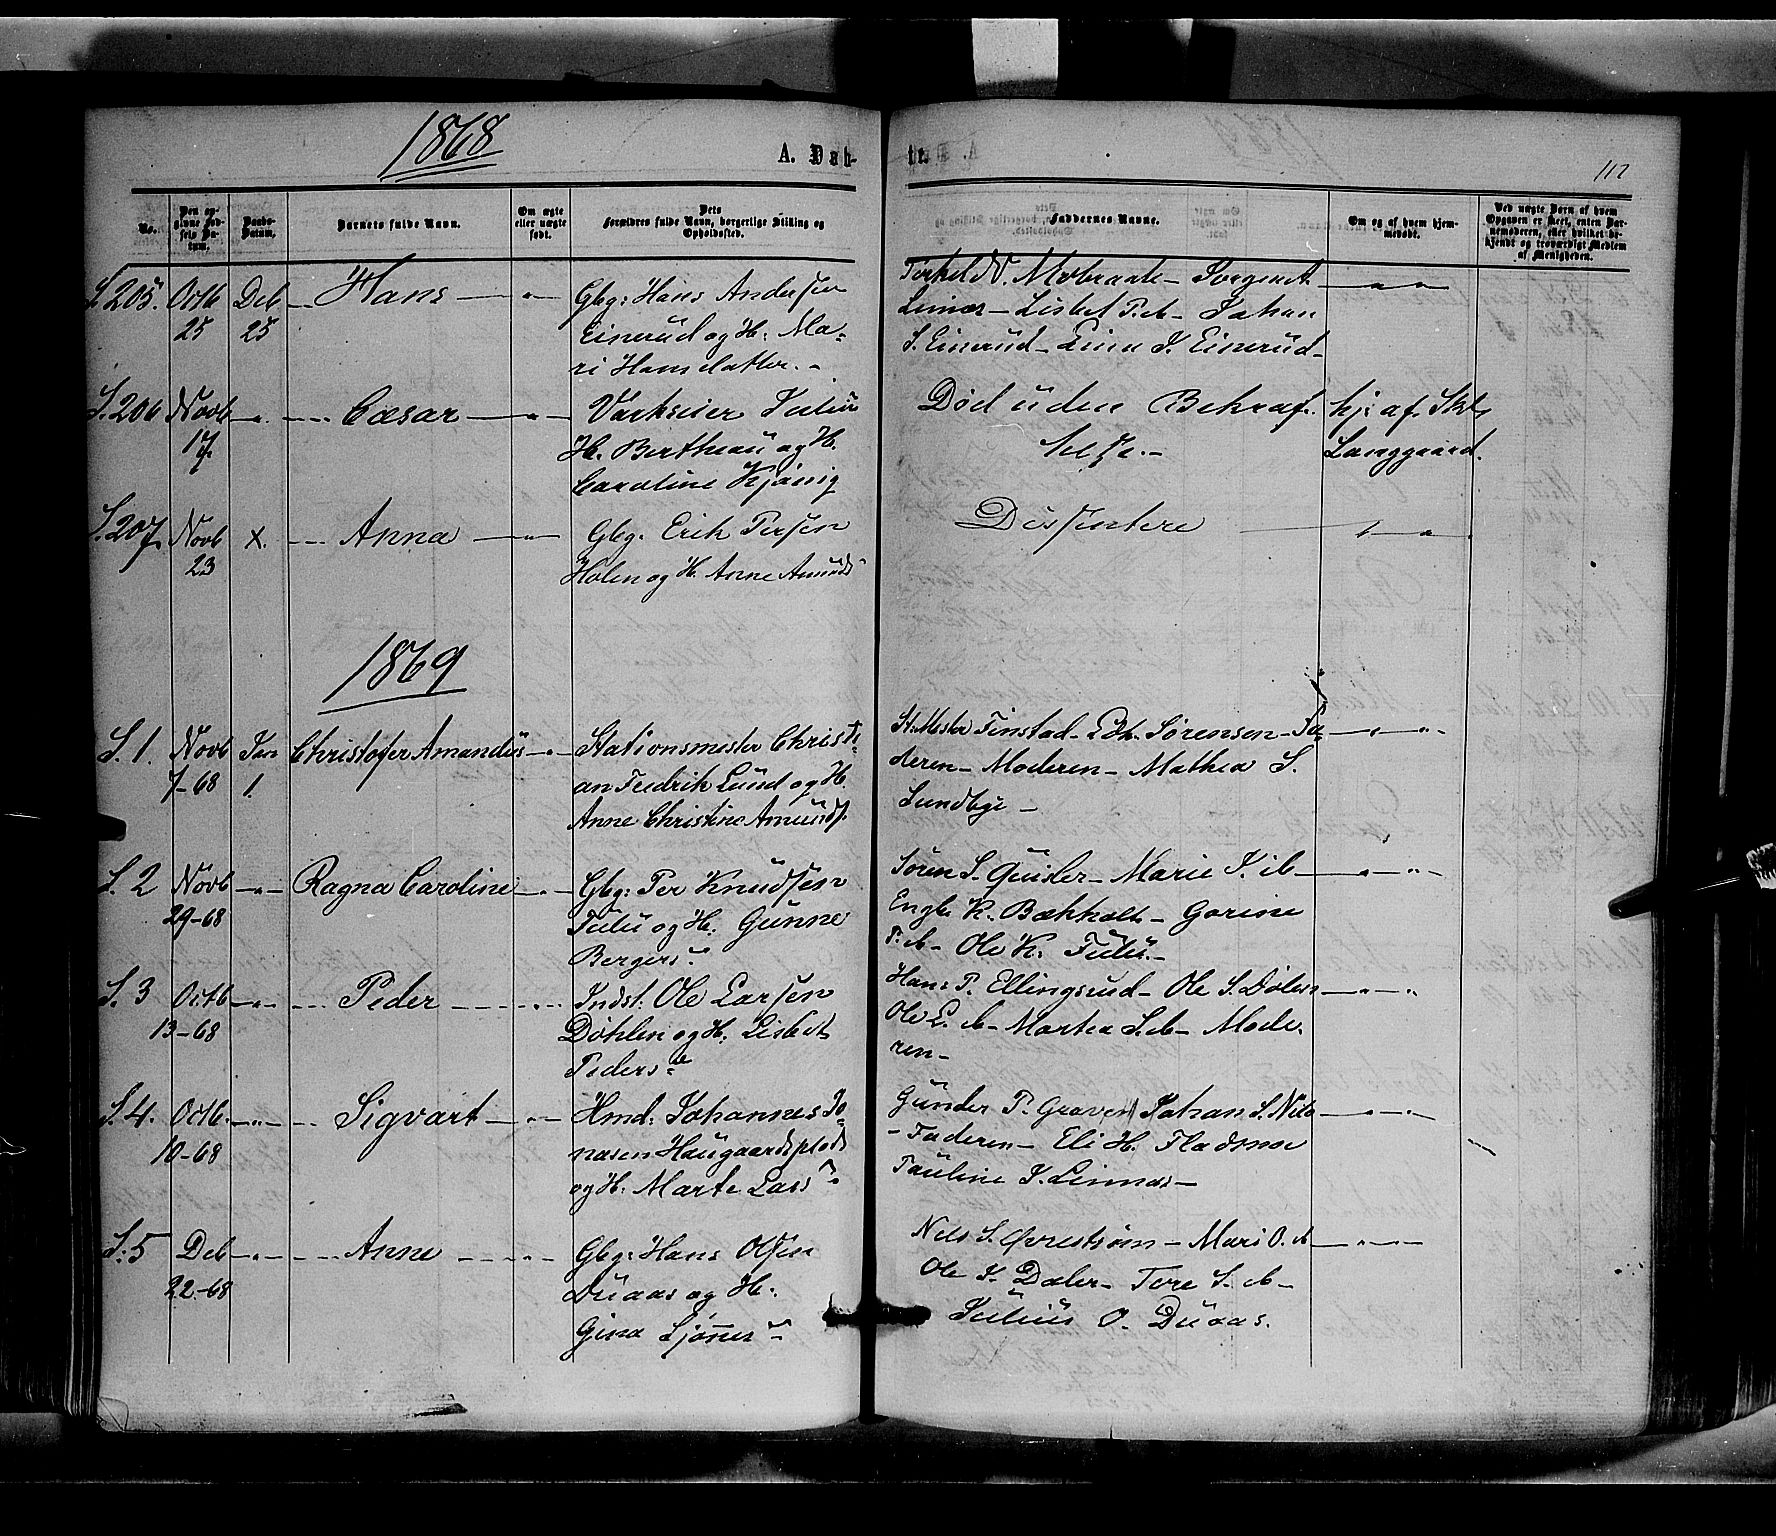 1868
A. Døb-
te.
112
No.
Den opgivne Fødsels Datum.
Daabs-Datum.
Barnets fulde Navn.
Om ægte eller uægte født.
Dets Forældres fulde Navn, borgerlige Stilling og Opholdssted.
Faddernes Navne.
Om og af hvem hjemmedøbt.
Ved uægte Børn af hvem Opgaven er skeet, enten Barnemoderen, eller hvilket bekjendt og troværdigt Medlem af Menigheden.
S. 205. Octb Deb Hans Gbg: Hans Andersen
25 25 Einerud og H: Ma-
ri Hansdatter.
Lisbet P. ib - Johan
S. Einerud - J. Einerud -
S. 206 Novb Cæsar Julius
17. H. Bertheau og H.
Caroline
Død uden Bekræf-
telse. -
hj: af
Langgaard.
S. 207. Novb X. Anna Gbg. Erik Persen
23 Holen og H. Anne Amunds
Dissentere
1869
S. 1. Novb Jan Christofer Amandus Stationsmester Christi-
7-68 1. an Fredrik Lund og H.
Anne Christine Amunds.
St. Mester Finstad - Edv. Sörensen - Fa-
deren - Moderen - Mathea S.
Sundbye -
S. 2 Novb Ragna Caroline Gbg: Per Knudsen
29-68 Tulu og H: Gunne
Bergers
Sören S. - Marie J. ib
Engb. K. Bækholt - Gorine
P. ib - Ole K. Tulu. -
S. 3 Octb Peder Indst: Ole Larsen
13-68 Döhlen og H: Lisbet
Peders
Hans P. Ellingsrud - Ole S. Dölen
Ole L. ib - Martea S. ib - Mode-
ren -
S. 4. Octb. Sigvart Hmd: Johannes Jo-
10-68 nasen Haugaardsplads
og H: Marte Lars
Gunder P. Graven Johan S. Nilo
- Faderen - Eli H. Fladsmoe
Pauline J. Linnes -
S. 5 Deb Anne Gbg: Hans Olsen
22-68 Duaas og H.
Gina
Nils S. Qvrestrøm - Mari O. ib
Ole J. Dæler - Tore S. ib -
Julius O. Duaas.